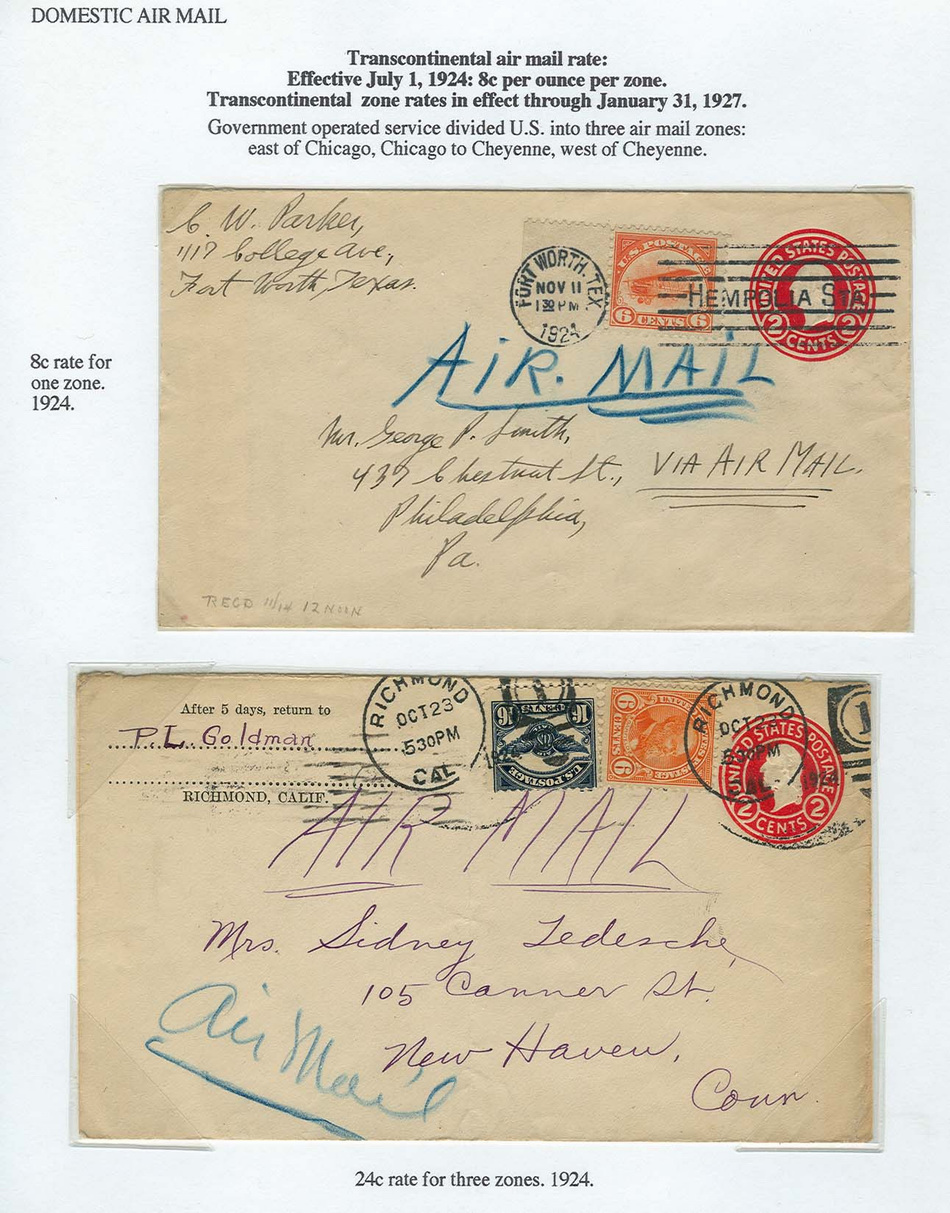 DOMESTIC AIR MAIL
Transcontinental air mail rate:
Effective July 1, 1924: 8c per ounce per zone.
Transcontinental zone rates in effect through January 31, 1927.
Government operated service divided U.S. into three air mail zones:
east of Chicago, Chicago to Cheyenne, west of Cheyenne.
8c rate for
one zone.
1924.
C. W. Parker,
1117 College Ave,
Fort Worth, Texas.
FORT WORTH, TEX
NOV 11
1 30 PM
1924
U.S. POSTAGE
6 CENTS 6
HEMPOLIA STA
UNITED STATES POSTAGE
2 CENTS 2
AIR. MAIL
Mr. George P. Smith,
437 Chestnut St.,
VIA AIR MAIL.
Philadelphia,
Pa.
RECD 11/14 12 NOON
After 5 days, return to
P.L. Goldman
RICHMOND, CALIF.
RICHMOND
OCT 23
530PM
CAL
16 CENTS 16
U.S. POSTAGE
6 CENTS 6
RICHMOND
OCT 23
530PM
CAL
1924
UNITED STATES POSTAGE
2 CENTS 2
1
AIR MAIL
Mrs. Sidney Tedesche,
105 Canner St.
New Haven,
Conn.
Air Mail
24c rate for three zones. 1924.